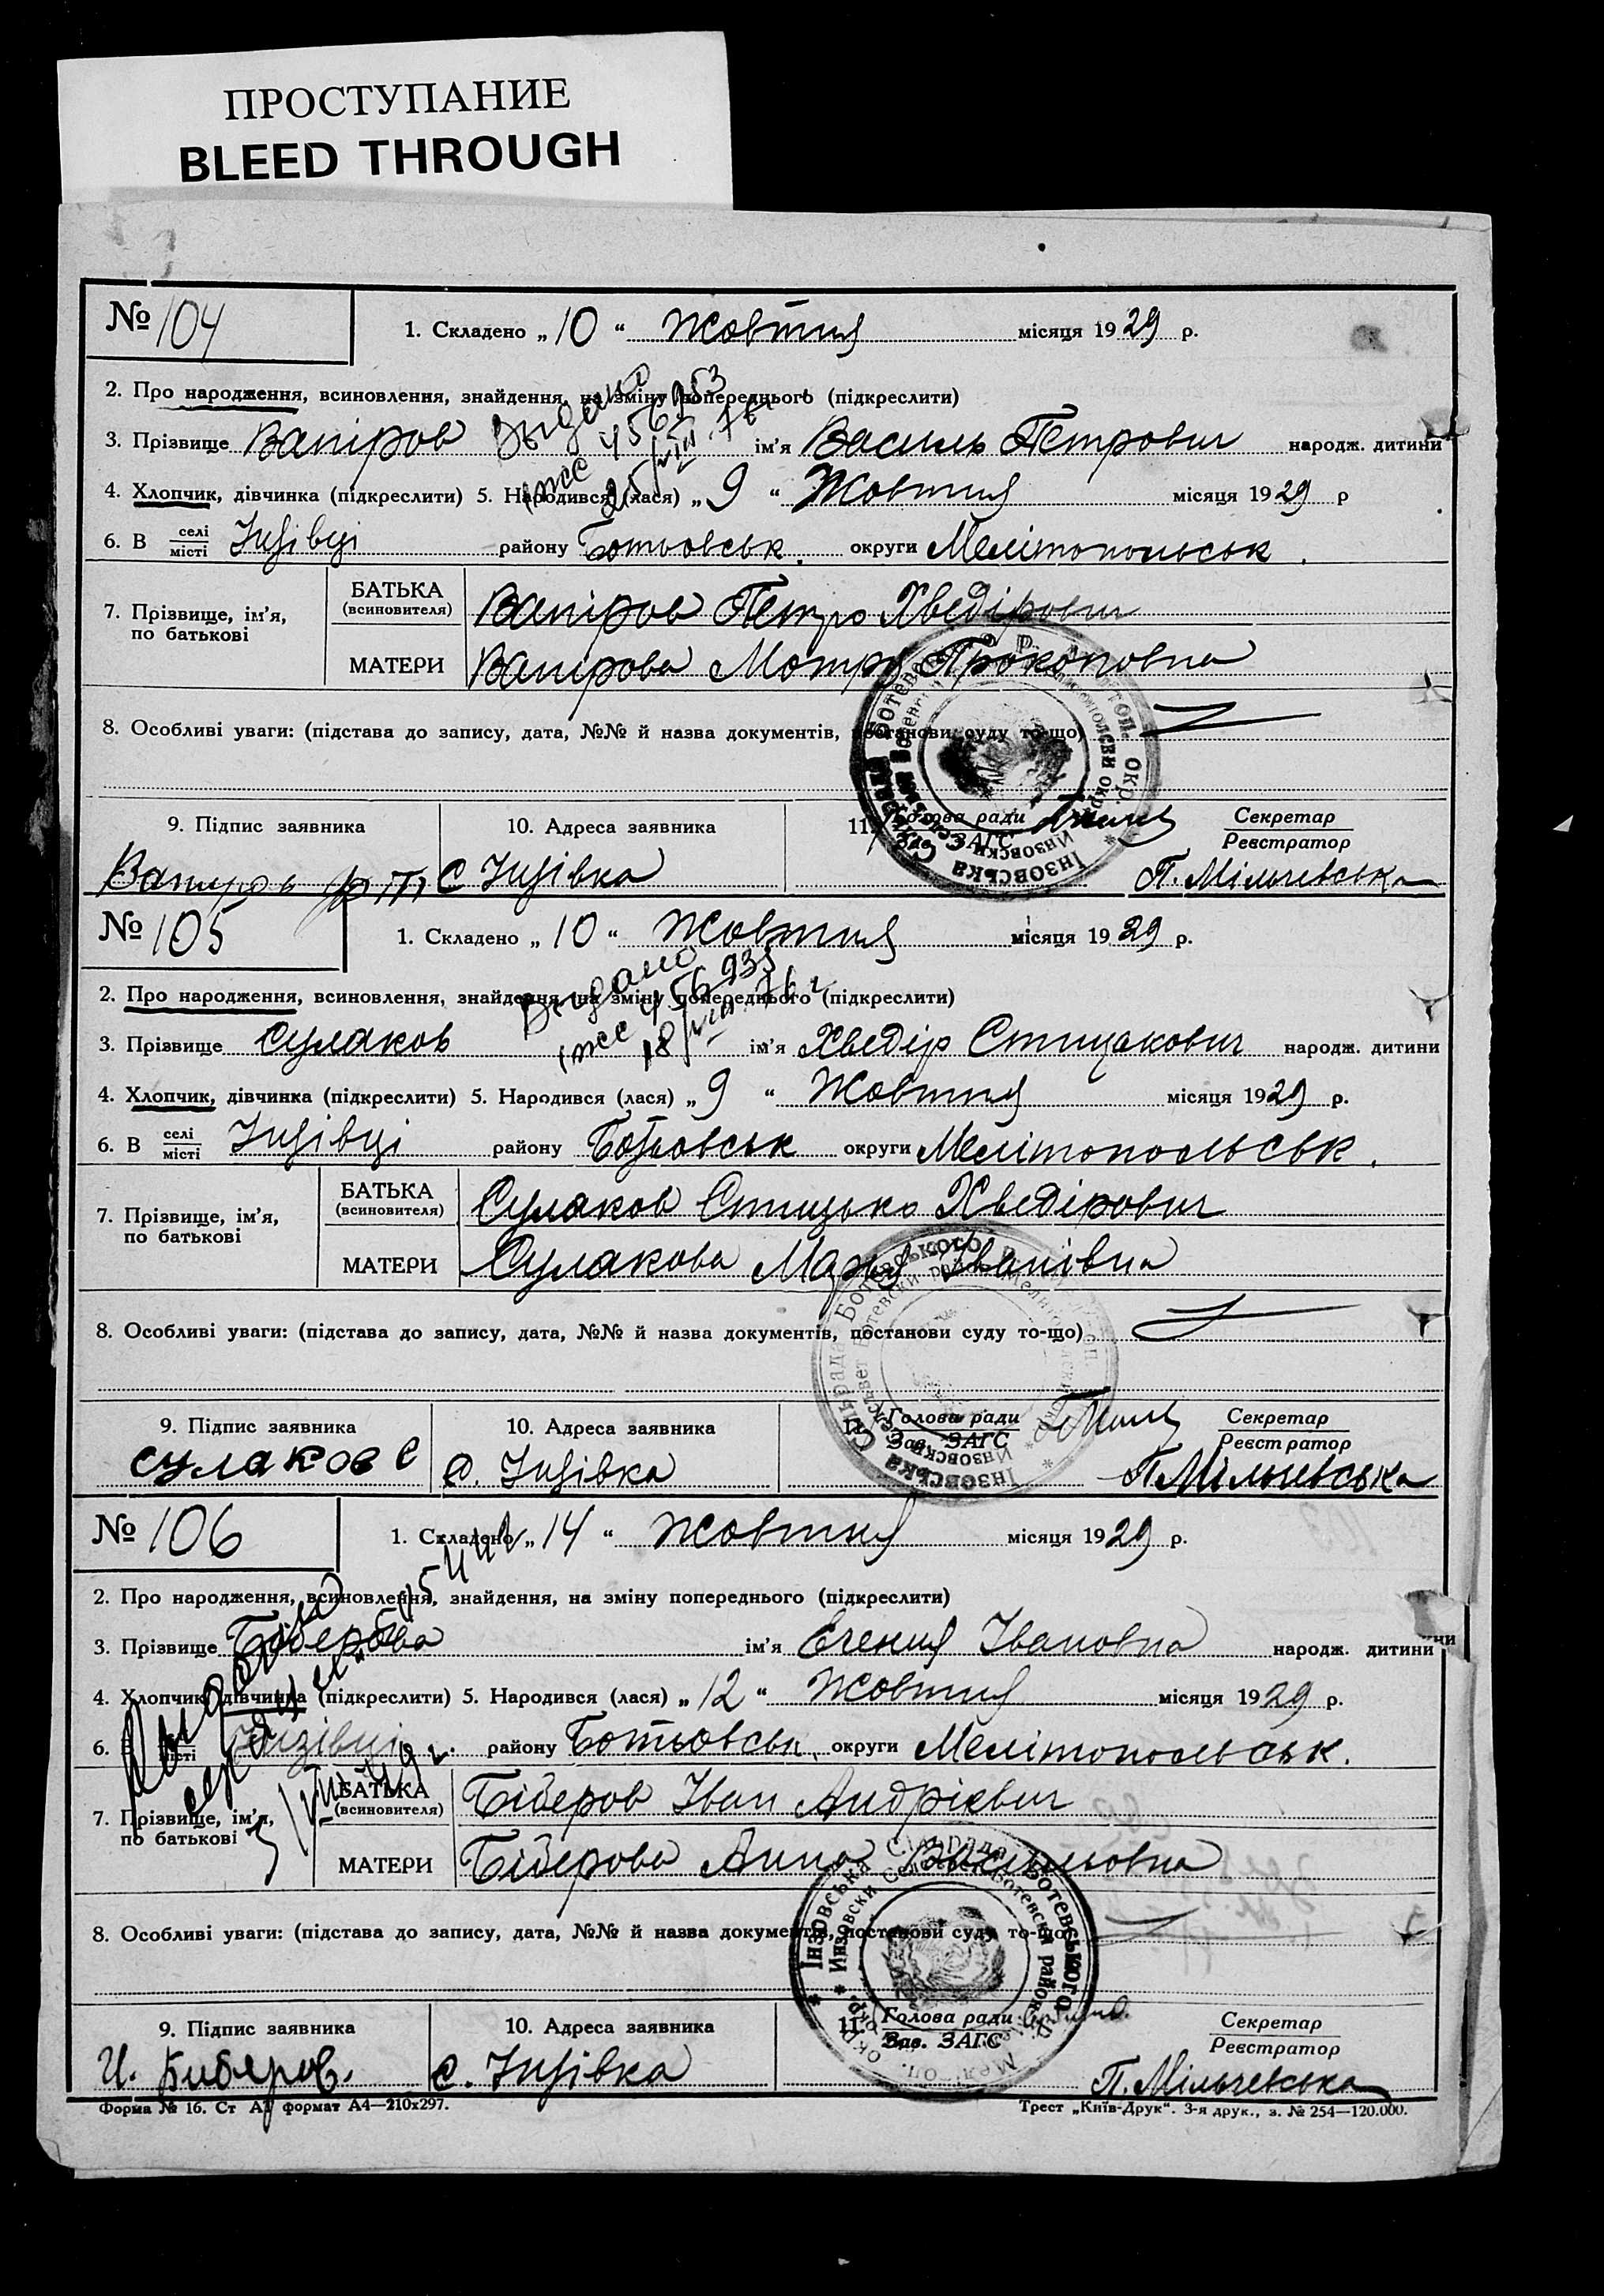 ПРОСТУПАНИЕ
BLEED THROUGH
№ 104
1. Складено „ 10 “ Жовтня місяця 1929 р.
2. Про народження, всиновлення, знайдення, на зміну попереднього (підкреслити)
3. Прізвище Вапіров ім'я Василь Петрович народж. дитини
4. Хлопчик, дівчинка (підкреслити) 5. Народився (лася) „ 9 “ Жовтня місяця 1929 р
6. В селі місті Інзівці району Ботьовськ. округи Мелітопольськ.
7. Прізвище, ім'я, по батькові
БАТЬКА (всиновителя) Вапіров Петро Хведірович
МАТЕРИ Вапірова Мотря Прокоповна
8. Особливі уваги: (підстава до запису, дата, №№ й назва документів, постанови суду то-що)
9. Підпис заявника 10. Адреса заявника 11. Голова ради Зав. ЗАГС Секретар Реєстратор
с Інзівка П. Мільчевська
№ 105
1. Складено „ 10 “ Жовтня місяця 1929 р.
2. Про народження, всиновлення, знайдення, на зміну попереднього (підкреслити)
3. Прізвище Сулаков ім'я Хведір Стицакович народж. дитини
4. Хлопчик, дівчинка (підкреслити) 5. Народився (лася) „ 9 “ Жовтня місяця 1929 р.
6. В селі місті Інзівці району Ботьовськ округи Мелітопольськ.
7. Прізвище, ім'я, по батькові
БАТЬКА (всиновителя) Сулаков Стицько Хведірович
МАТЕРИ Сулакова Марія Іванівна
8. Особливі уваги: (підстава до запису, дата, №№ й назва документів, постанови суду то-що)
9. Підпис заявника 10. Адреса заявника 11. Голова ради Зав. ЗАГС Секретар Реєстратор
Сулаков С с. Інзівка П. Мільчевська
№ 106
1. Складено „ 14 “ Жовтня місяця 1929 р.
2. Про народження, всиновлення, знайдення, на зміну попереднього (підкреслити)
3. Прізвище Бідерова ім'я Евгения Івановна народж. дитини
4. Хлопчик, дівчинка (підкреслити) 5. Народився (лася) „ 12 “ Жовтня місяця 1929 р.
6. В місті Інзівці району Ботьовськ. округи Мелітопольськ.
7. Прізвище, ім'я, по батькові
БАТЬКА (всиновителя) Бідеров Іван Андрієвич
МАТЕРИ Бідерова Анна Васильовна
8. Особливі уваги: (підстава до запису, дата, №№ й назва документів, постанови суду то-що)
9. Підпис заявника 10. Адреса заявника 11. Голова ради Зав. ЗАГС Секретар Реєстратор
с. Інзівка П. Мільчевська
Форма № 16. Ст А3 формат А4—210х297. Трест „Київ-Друк“. 3-я друк., з. № 254—120.000.